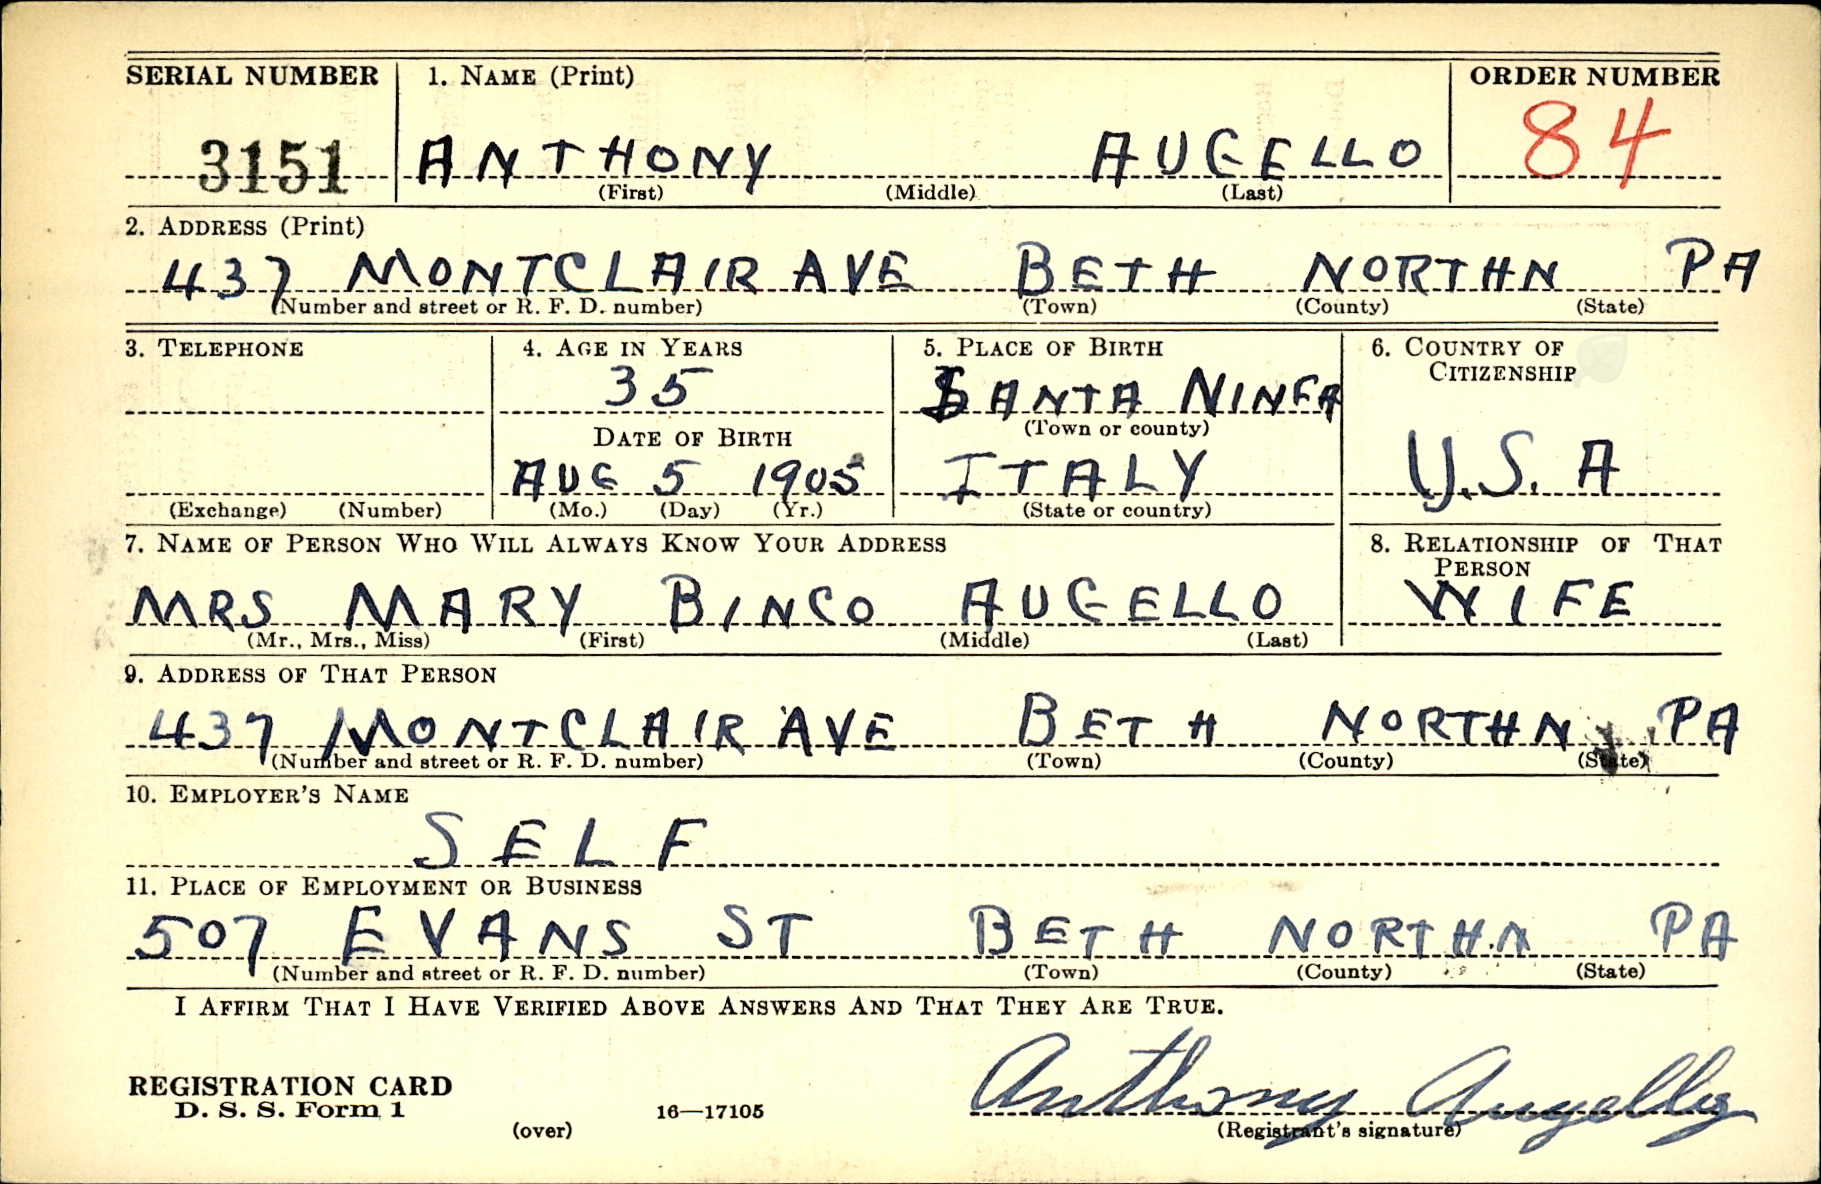 SERIAL NUMBER 1. NAME (Print) ORDER NUMBER
3151 ANTHONY AUGELLO 84
(First) (Middle) (Last)
2. ADDRESS (Print)
437 MONTCLAIR AVE BETH NORTHN PA
(Number and street or R. F. D. number) (Town) (County) (State)
3. TELEPHONE 4. AGE IN YEARS 5. PLACE OF BIRTH 6. COUNTRY OF CITIZENSHIP
35 SANTA NINFA
DATE OF BIRTH (Town or county)
AUG 5 1905 ITALY U.S.A
(Exchange) (Number) (Mo.) (Day) (Yr.) (State or country)
7. NAME OF PERSON WHO WILL ALWAYS KNOW YOUR ADDRESS 8. RELATIONSHIP OF THAT PERSON
MRS MARY BINCO AUGELLO WIFE
(Mr., Mrs., Miss) (First) (Middle) (Last)
9. ADDRESS OF THAT PERSON
437 MONTCLAIR AVE BETH NORTHN PA
(Number and street or R. F. D. number) (Town) (County) (State)
10. EMPLOYER'S NAME
SELF
11. PLACE OF EMPLOYMENT OR BUSINESS
507 EVANS ST BETH NORTHN PA
(Number and street or R. F. D. number) (Town) (County) (State)
I AFFIRM THAT I HAVE VERIFIED ABOVE ANSWERS AND THAT THEY ARE TRUE.
REGISTRATION CARD
D. S. S. Form 1 16—17105 Anthony Augello
(over) (Registrant's signature)